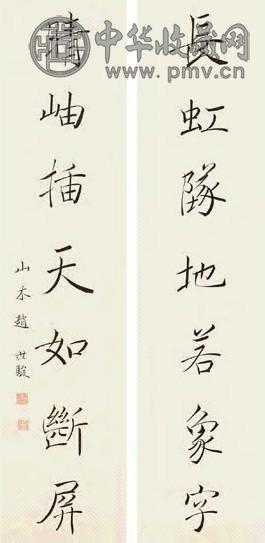 中华收藏网
www.pmv.cn
長虹隊地若象字
晴岫插天如斷屏
山木趙世駿